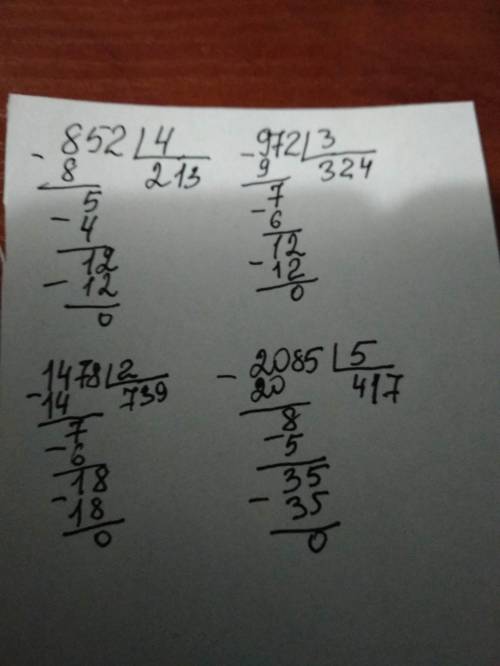 - 852 | 4
8 213
5
- 4
12
- 12
0
- 972 | 3
9 324
7
- 6
12
- 12
0
1478 | 2
- 14 739
7
- 6
18
- 18
0
- 2085 | 5
20 417
8
- 5
35
- 35
0